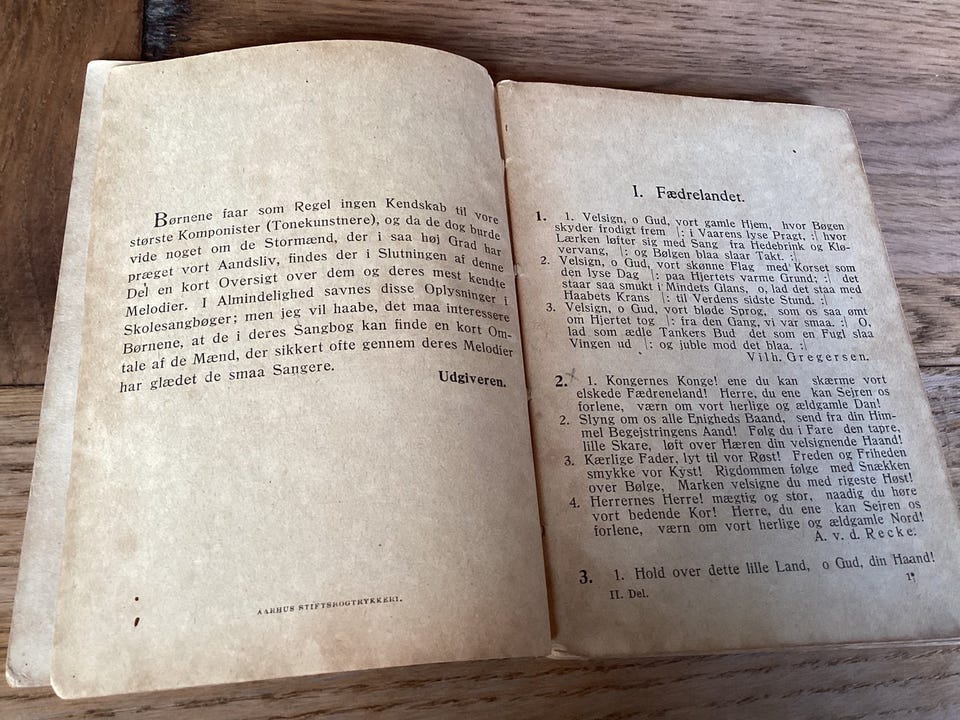 Børnene faar som Regel ingen Kendskab til vore
største Komponister (Tonekunstnere), og da de dog burde
vide noget om de Stormænd, der i saa høj Grad har
præget vort Aandsliv, findes der i Slutningen af denne
Del en kort Oversigt over dem og deres mest kendte
Melodier. I Almindelighed savnes disse Oplysninger i
Skolesangbøger; men jeg vil haabe, det maa interessere
Børnene, at de i deres Sangbog kan finde en kort Om-
tale af de Mænd, der sikkert ofte gennem deres Melodier
har glædet de smaa Sangere.
Udgiveren.
AARHUS STIFTSBOGTRYKKERI.
I. Fædrelandet.
1. 1. Velsign, o Gud, vort gamle Hjem, hvor Bøgen
skyder frodigt frem |: i Vaarens lyse Pragt, :| hvor
Lærken løfter sig med Sang fra Hedebrink og Klø-
vervang, |: og Bølgen blaa slaar Takt. :|
2. Velsign, o Gud, vort skønne Flag med Korset som
den lyse Dag |: paa Hjertets varme Grund; :| det
staar saa smukt i Mindets Glans, o, lad det staa med
Haabets Krans |: til Verdens sidste Stund. :|
3. Velsign, o Gud, vort bløde Sprog, som os saa ømt
om Hjertet tog |: fra den Gang, vi var smaa. :| O,
lad som ædle Tankers Bud det som en Fugl slaa
Vingen ud |: og juble mod det blaa. :|
Vilh. Gregersen.
2. 1. Kongernes Konge! ene du kan skærme vort
elskede Fædreneland! Herre, du ene kan Sejren os
forlene, værn om vort herlige og ældgamle Dan!
2. Slyng om os alle Enigheds Baand, send fra din Him-
mel Begejstringens Aand! Følg du i Fare den tapre,
lille Skare, løft over Hæren din velsignende Haand!
3. Kærlige Fader, lyt til vor Røst! Freden og Friheden
smykke vor Kyst! Rigdommen følge med Snækken
over Bølge, Marken velsigne du med rigeste Høst!
4. Herrernes Herre! mægtig og stor, naadig du høre
vort bedende Kor! Herre, du ene kan Sejren os
forlene, værn om vort herlige og ældgamle Nord!
A. v. d. Recke.
3. 1. Hold over dette lille Land, o Gud, din Haand!
II. Del. 1